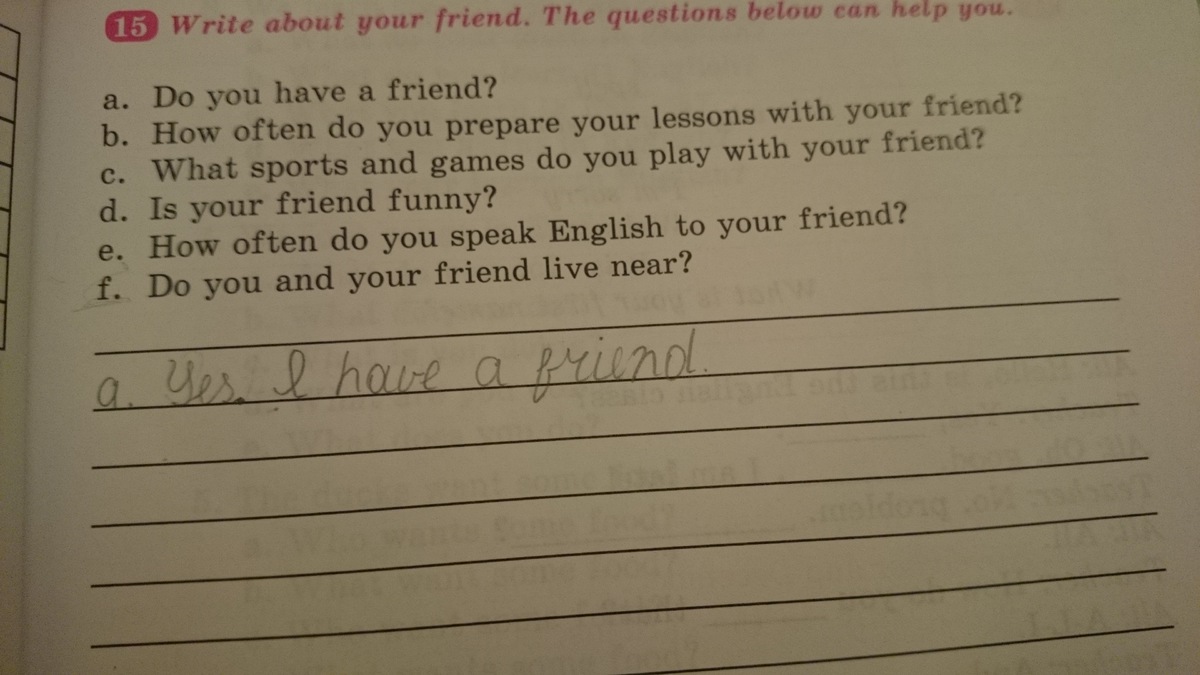 15 Write about your friend. The questions below can help you.
a. Do you have a friend?
b. How often do you prepare your lessons with your friend?
c. What sports and games do you play with your friend?
d. Is your friend funny?
e. How often do you speak English to your friend?
f. Do you and your friend live near?
a. Yes. I have a friend.